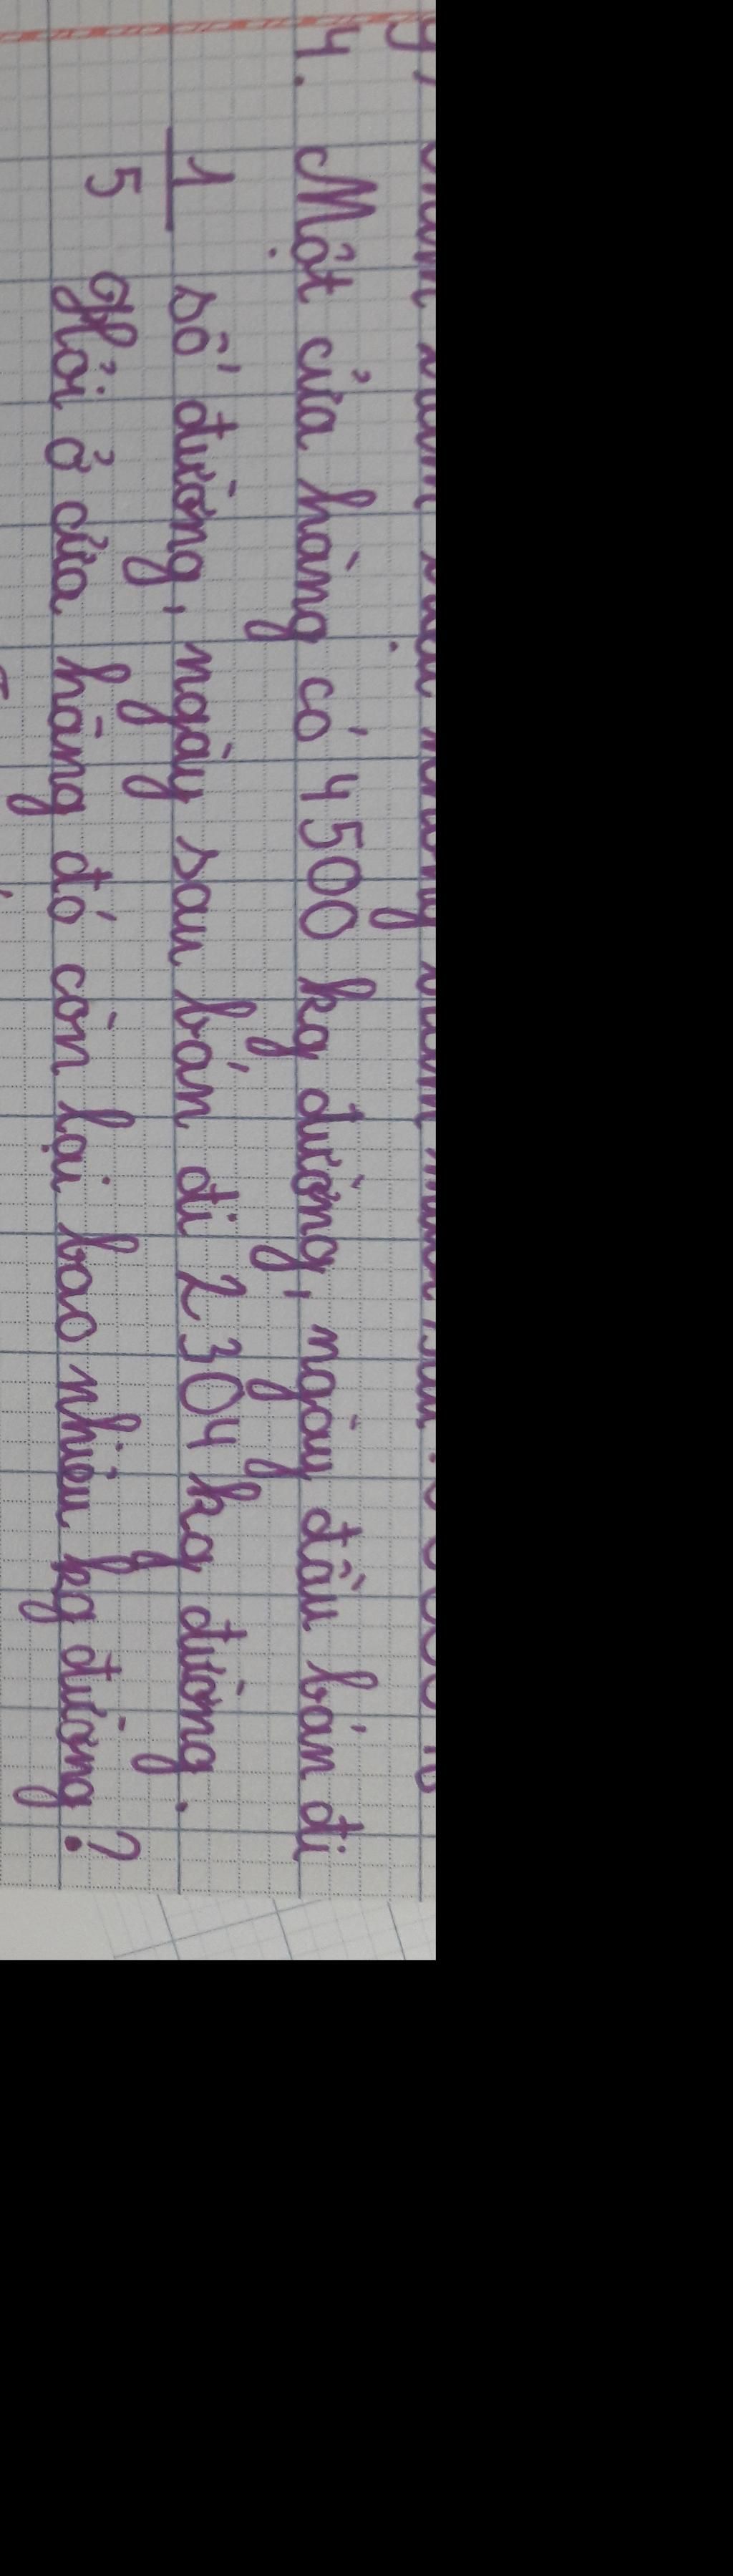 4. Một cửa hàng có 4500 kg đường, ngày đầu bán đi
1/5 số đường, ngày sau bán đi 2304 kg đường.
Hỏi ở cửa hàng đó còn lại bao nhiêu kg đường?